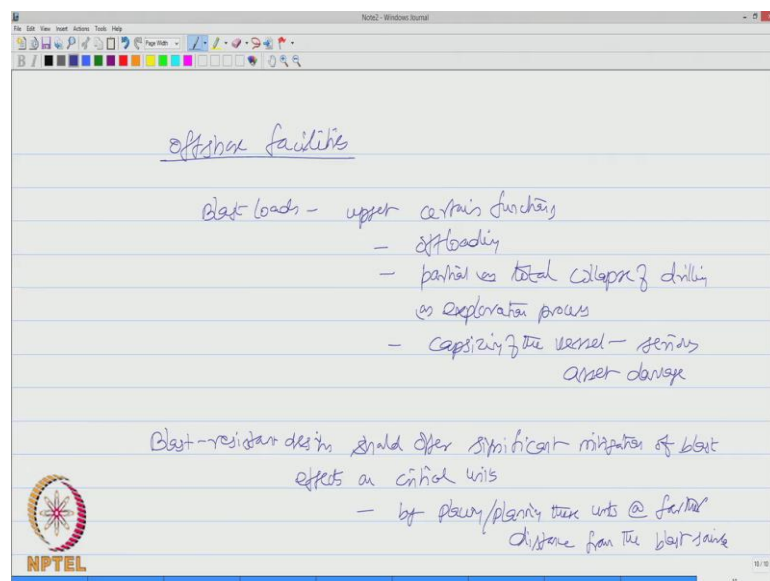 Note2 - Windows Journal
File Edit View Insert Actions Tools Help
Page Width
B I
Offshore facilities
Blast loads - upset certain functions
- offloading
- partial or total collapse of drilling
or exploration process
- capsizing of the vessel - serious
asset damage
Blast-resistant design should offer significant mitigation of blast
effects on critical units
- by placing/planning these units @ farther
distance from the blast source
NPTEL
10/10